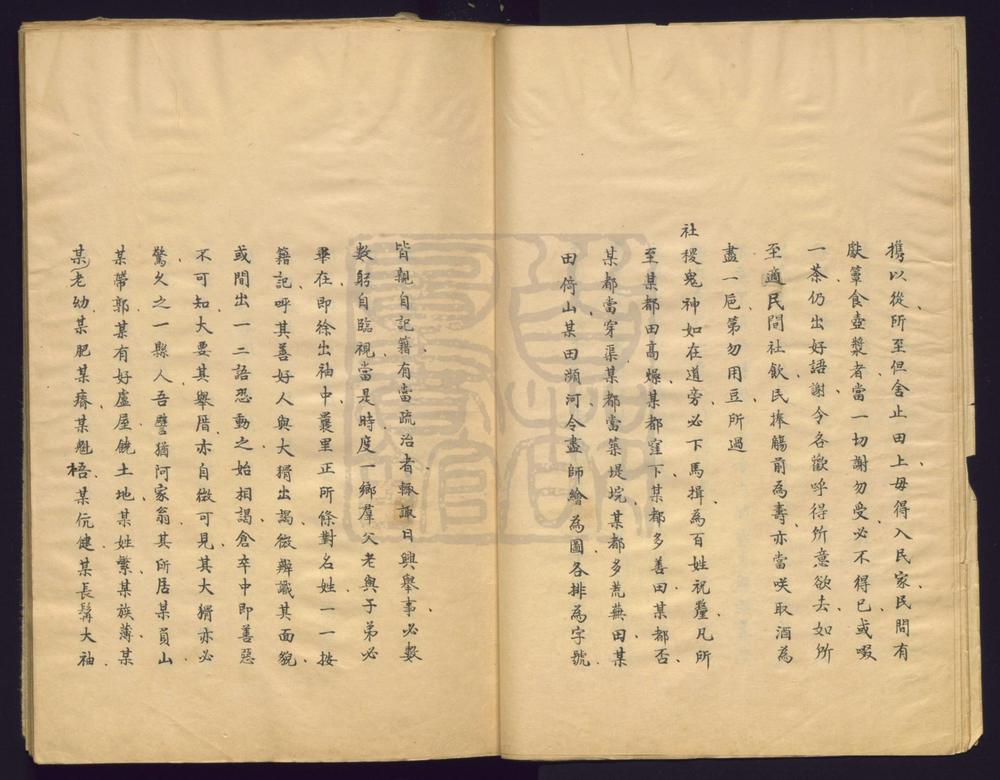 攜以從所至但舍止田上毋得入民家民間有
獻簞食壺漿者當一切謝勿受必不得已或啜
一茶仍出好語謝令各歡呼得所意欲去如所
至適民間社飲民捧觴前為壽亦當咲取酒為
盡一卮第勿用豆所過
社稷鬼神如在道旁必下馬揖為百姓祝釐凡所
至某都田高燥某都窪下某都多善田某都否
某都當穿渠某都當築堤垸某都多荒蕪田某
田倚山某田瀕河令畫師繪為圖各排為字號
皆親自記籍有當疏治者輒諏日興舉事必數
數躬自臨視當是時度一鄉羣父老與子弟必
畢在即徐出袖中曩里正所條對名姓一一按
籍記呼其善好人與大猾出謁微辨識其面貌
或間出一二語恐動之始相謁倉卒中即善惡
不可知大要其舉厝亦自微可見其大猾亦必
驚久之一縣人吾譬猶阿家翁其所居某負山
某帶郭某有好廬屋饒土地某姓繁某族薄某
某老幼某肥某瘠某魁梧某伉健某長髯大袖